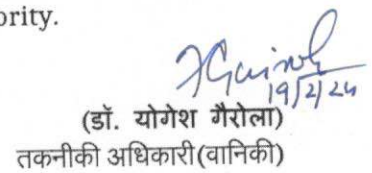 ority.
19/2/24
(डॉ. योगेश गैरोला)
तकनीकी अधिकारी(वानिकी)